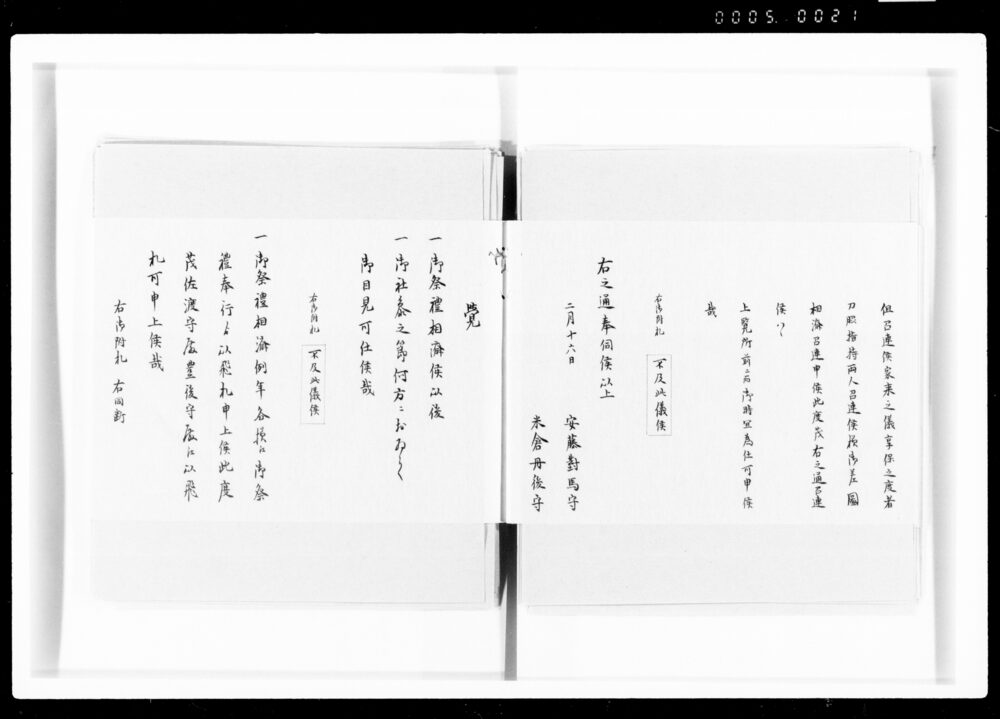 0005. 0021
但召連候家来之儀享保之度若
刀脇指持両人召連候様御差圖
相濟召連申候此度茂右之通召連
候而
上覧所前ニ而御時宜為仕可申候
哉
右御附札 不及此儀候
右之通奉伺候以上
二月十六日
安藤對馬守
米倉丹後守
覺
一御祭禮相濟候以後
一御社参之節何方ニおゐて
御目見可仕候哉
右御附札 不及此儀候
一御祭禮相濟例年各様江御祭
禮奉行ゟ以飛札申上候此度
茂佐渡守殿豊後守殿江以飛
札可申上候哉
右御附札 右同断